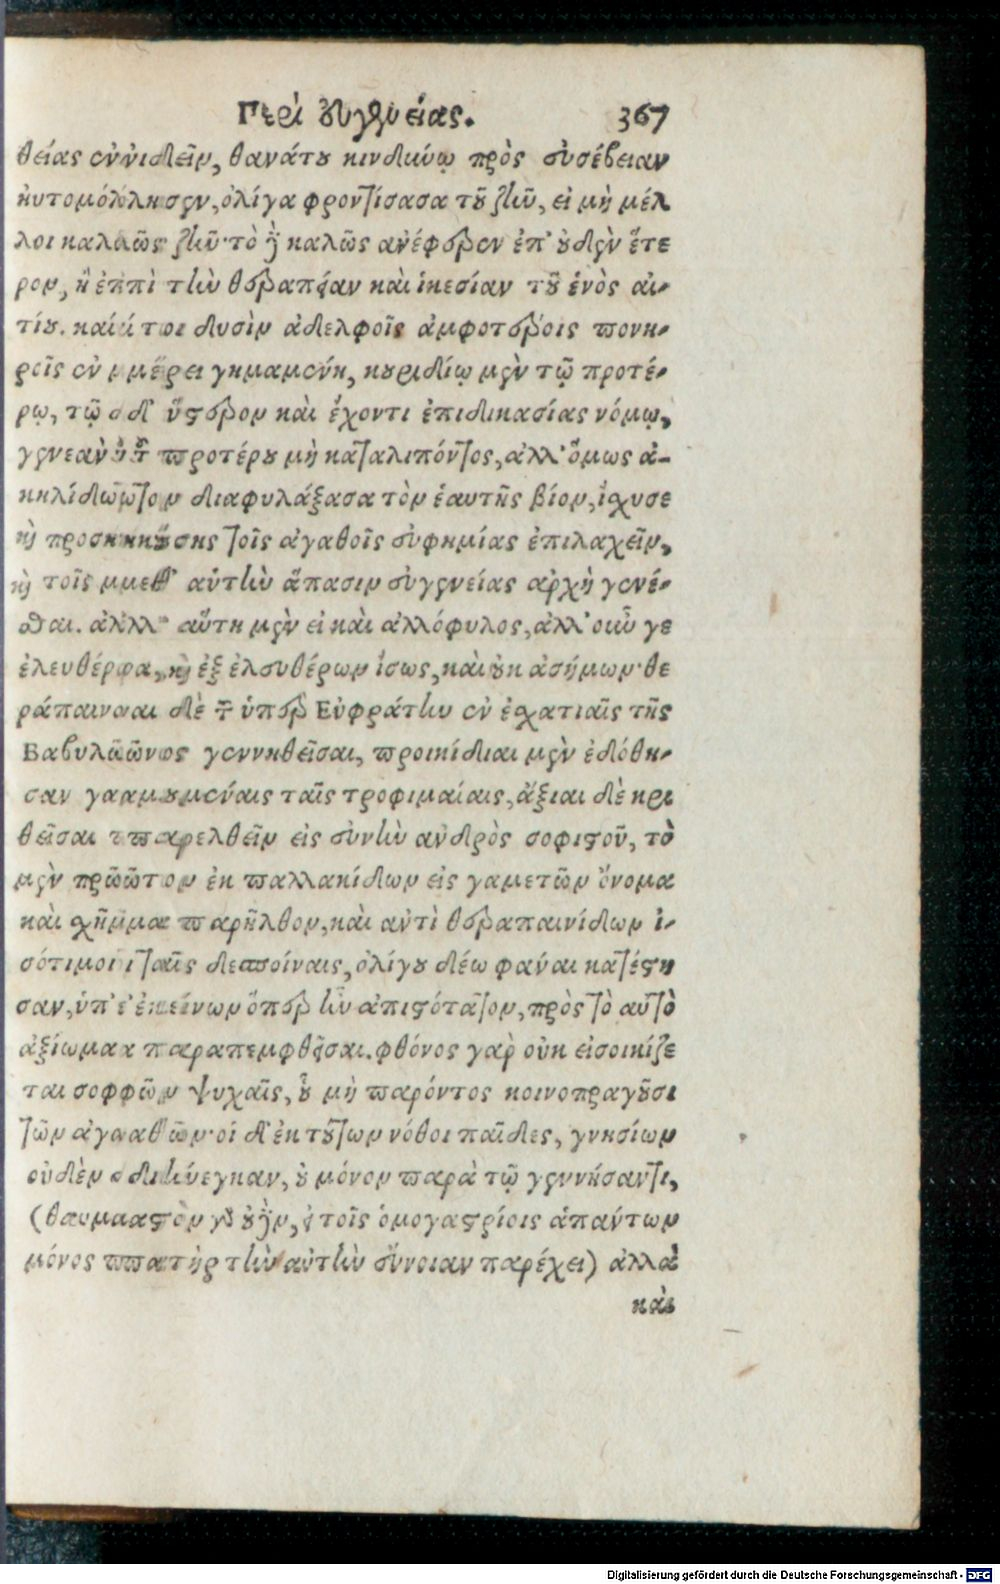 Περὶ εὐγενείας. 367
θείας ἐννιδεῖν, θανάτου κινδύνῳ πρὸς εὐσέβειαν
ηὐτομόλησεν, ὀλίγα φροντίσασα τοῦ ζῆν, εἰ μὴ μέλ
λοι καλῶς ζῆν· τὸ δὲ καλῶς ἀνέφερεν ἐπ' οὐδὲν ἕτε
ρον, ἢ ἐπὶ τὴν θεραπείαν καὶ ἱκεσίαν τοῦ ἑνὸς αἰ-
τίου. καίτοι δυσὶν ἀδελφοῖς ἀμφοτέροις πονη-
ροῖς ἐν μέρει γημαμένη, κουριδίῳ μὲν τῷ προτέ-
ρῳ, τῷ δ' ὕστερον καὶ ἔχοντι ἐπιδικασίας νόμῳ,
γενεὰν τοῦ προτέρου μὴ καταλιπόντος, ἀλλ' ὅμως ἀ-
κηλίδωτον διαφυλάξασα τὸν ἑαυτῆς βίον, ἴσχυσε
καὶ προσηκούσης τοῖς ἀγαθοῖς εὐφημίας ἐπιλαχεῖν,
καὶ τοῖς μεθ' αὑτὴν ἅπασιν εὐγενείας ἀρχὴ γενέ-
σθαι. ἀλλ' αὕτη μὲν εἰ καὶ ἀλλόφυλος, ἀλλ' οὖν γε
ἐλευθέρα, καὶ ἐξ ἐλευθέρων ἴσως, καὶ οὐκ ἀσήμων· θε
ράπαιναι δὲ τῶν ὑπὲρ Εὐφράτην ἐν ἐσχατιαῖς τῆς
Βαβυλῶνος γεννηθεῖσαι, προικίδιαι μὲν ἐδόθη-
σαν γαμουμέναις ταῖς τροφιμαίαις, ἄξιαι δὲ κρι
θεῖσαι παρελθεῖν εἰς εὐνὴν ἀνδρὸς σοφιστοῦ, τὸ
μὲν πρῶτον ἐκ παλλακίδων εἰς γαμετῶν ὄνομα
καὶ σχῆμα παρῆλθον, καὶ ἀντὶ θεραπαινίδων ἰ-
σότιμοι ταῖς δεσποίναις, ὀλίγου δέω φάναι κατέστη
σαν, ὑπ' ἐκείνων ὅπερ ἦν ἀπιστότατον, πρὸς τὸ αὐτὸ
ἀξίωμα παραπεμφθεῖσαι. φθόνος γὰρ οὐκ εἰσοικίζε
ται σοφῶν ψυχαῖς, οὗ μὴ παρόντος κοινοπραγοῦσι
τῶν ἀγαθῶν· οἱ δ' ἐκ τούτων νόθοι παῖδες, γνησίων
οὐδὲν διήνεγκαν, οὐ μόνον παρὰ τῷ γεννήσαντι,
(θαυμαστὸν γὰρ οὐδὲν, εἰ τοῖς ὁμογαστρίοις ἁπάντων
μόνος πατὴρ τὴν αὐτὴν εὔνοιαν παρέχει) ἀλλὰ
καὶ
Digitalisierung gefördert durch die Deutsche Forschungsgemeinschaft - DFG